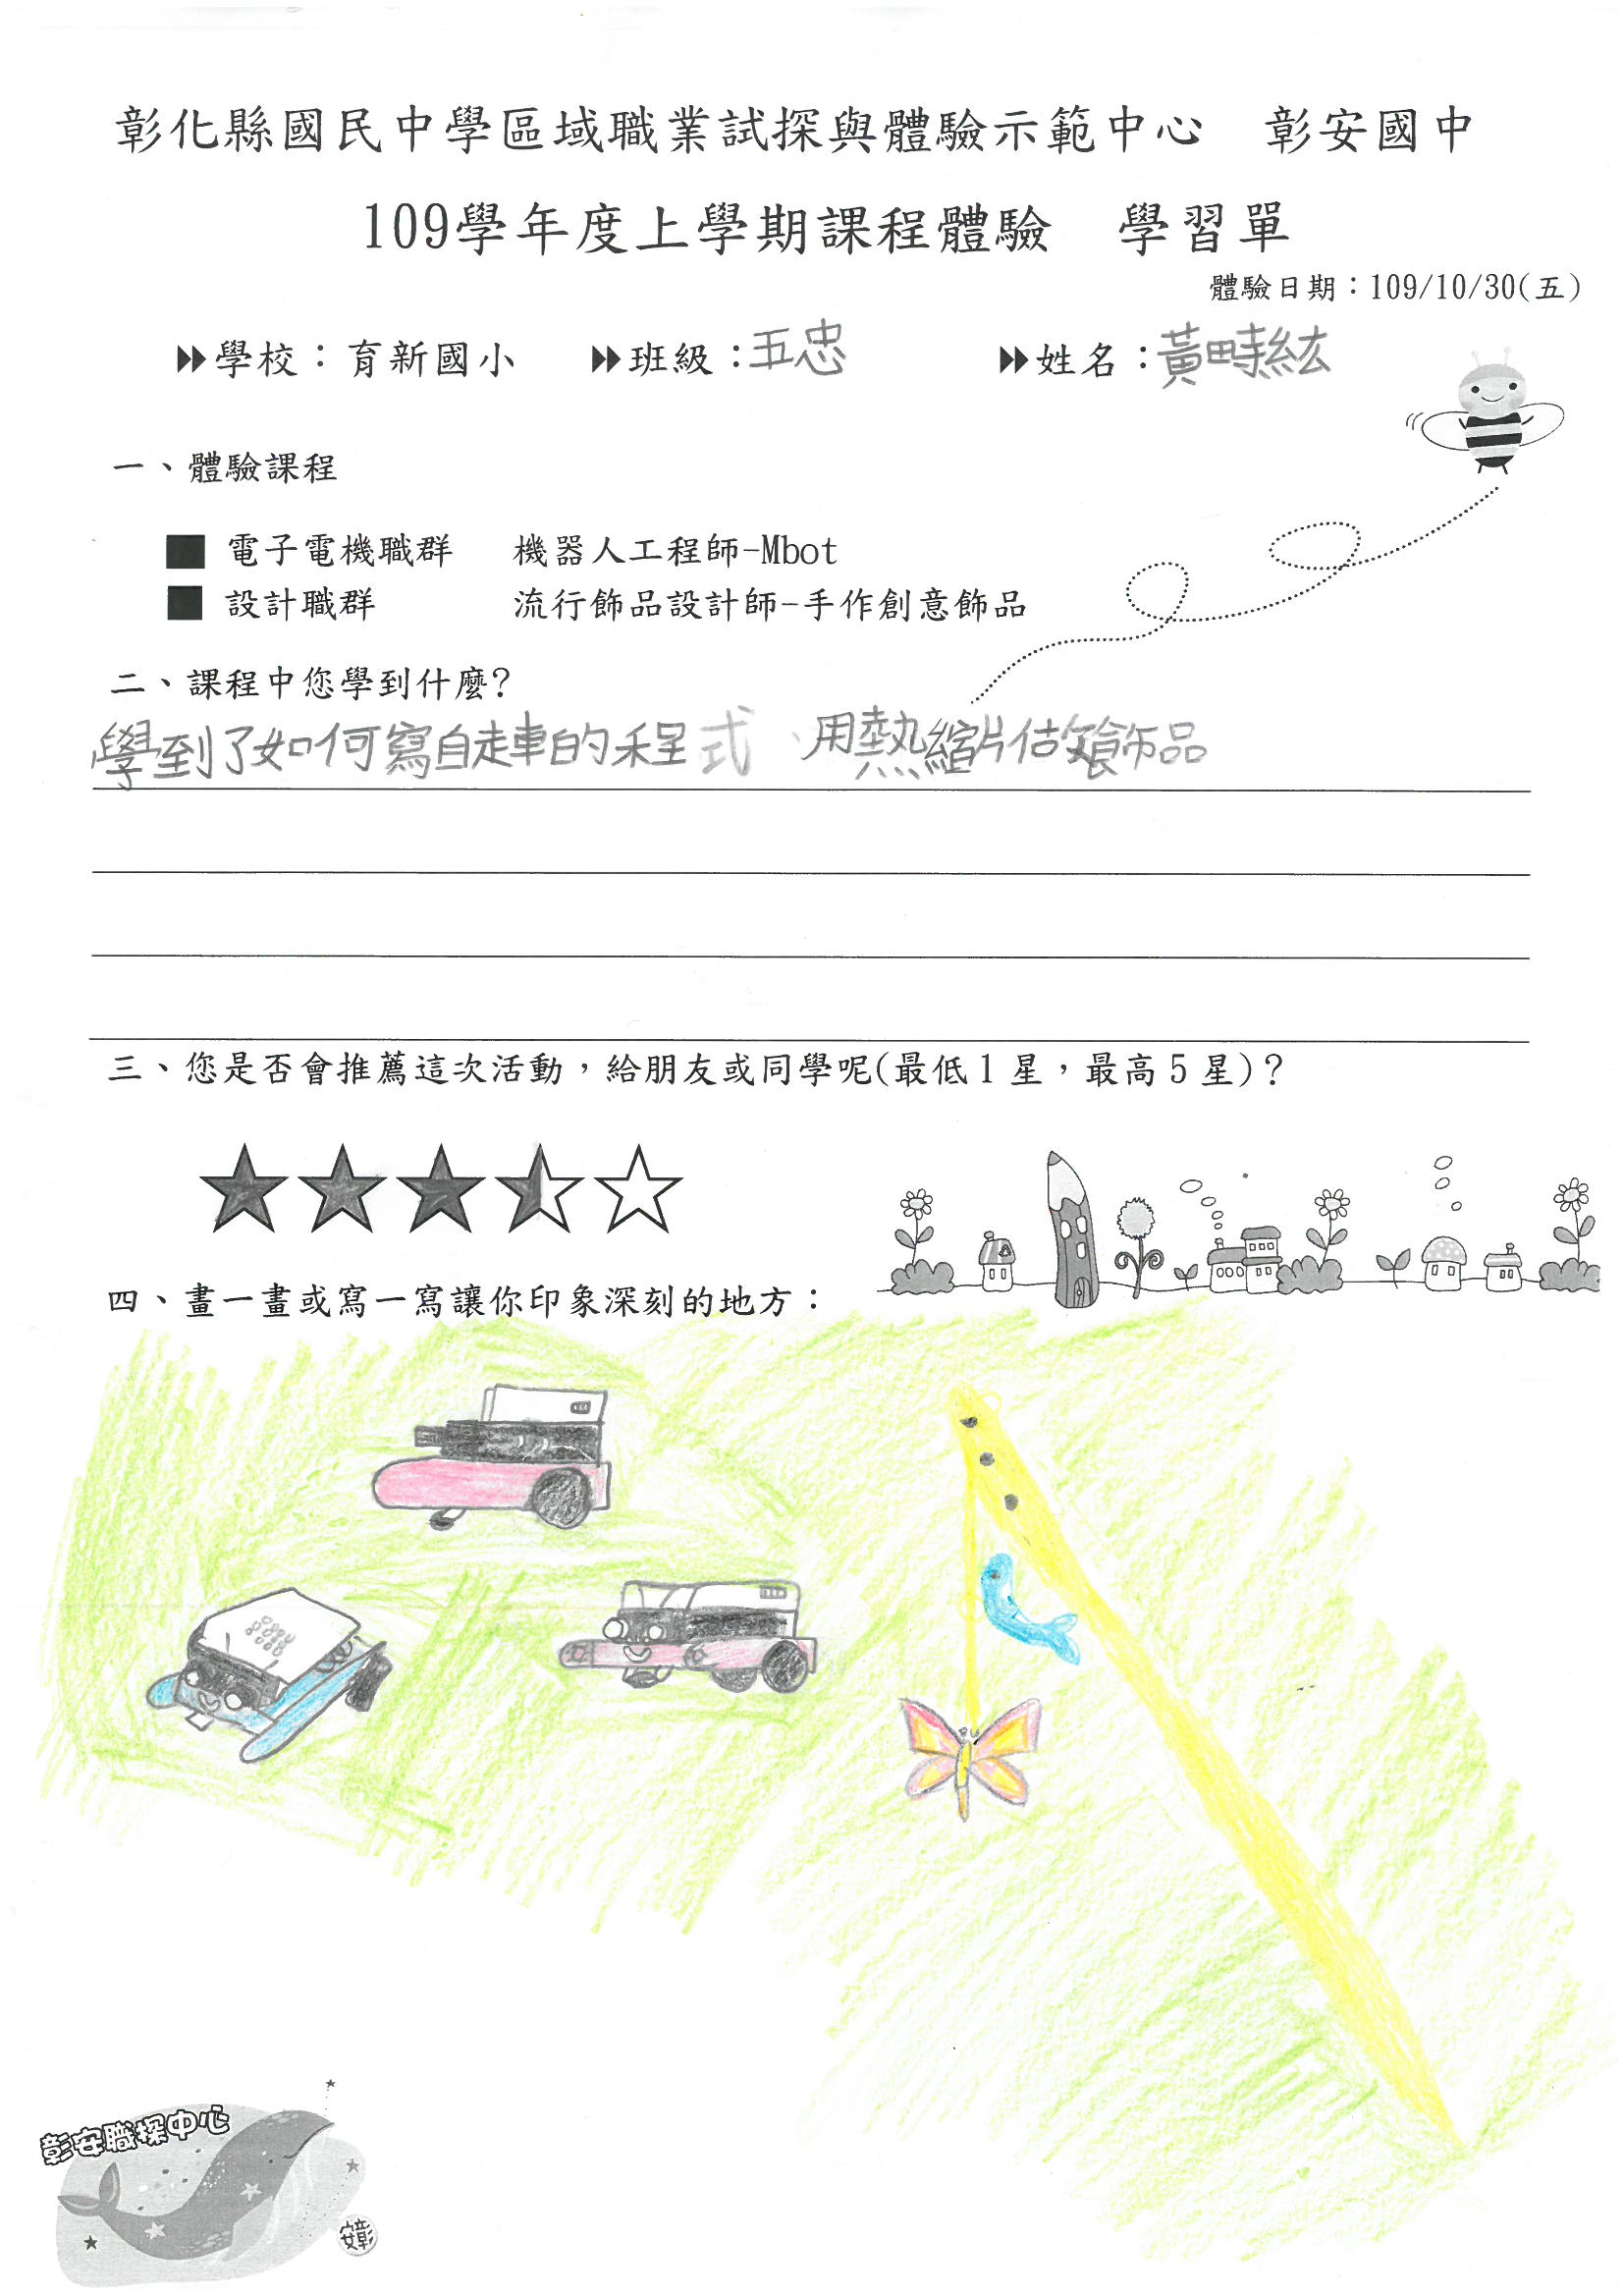 彰化縣國民中學區域職業試探與體驗示範中心 彰安國中
109學年度上學期課程體驗 學習單
體驗日期：109/10/30(五)
學校：育新國小 班級：五忠 姓名：黃
一、體驗課程
■ 電子電機職群 機器人工程師-Mbot
■ 設計職群 流行飾品設計師-手作創意飾品
二、課程中您學到什麼?
學到了如何寫自走車的程式、用熱縮片做飾品
三、您是否會推薦這次活動，給朋友或同學呢(最低1星，最高5星)?
四、畫一畫或寫一寫讓你印象深刻的地方：
彰安職探中心
彰安